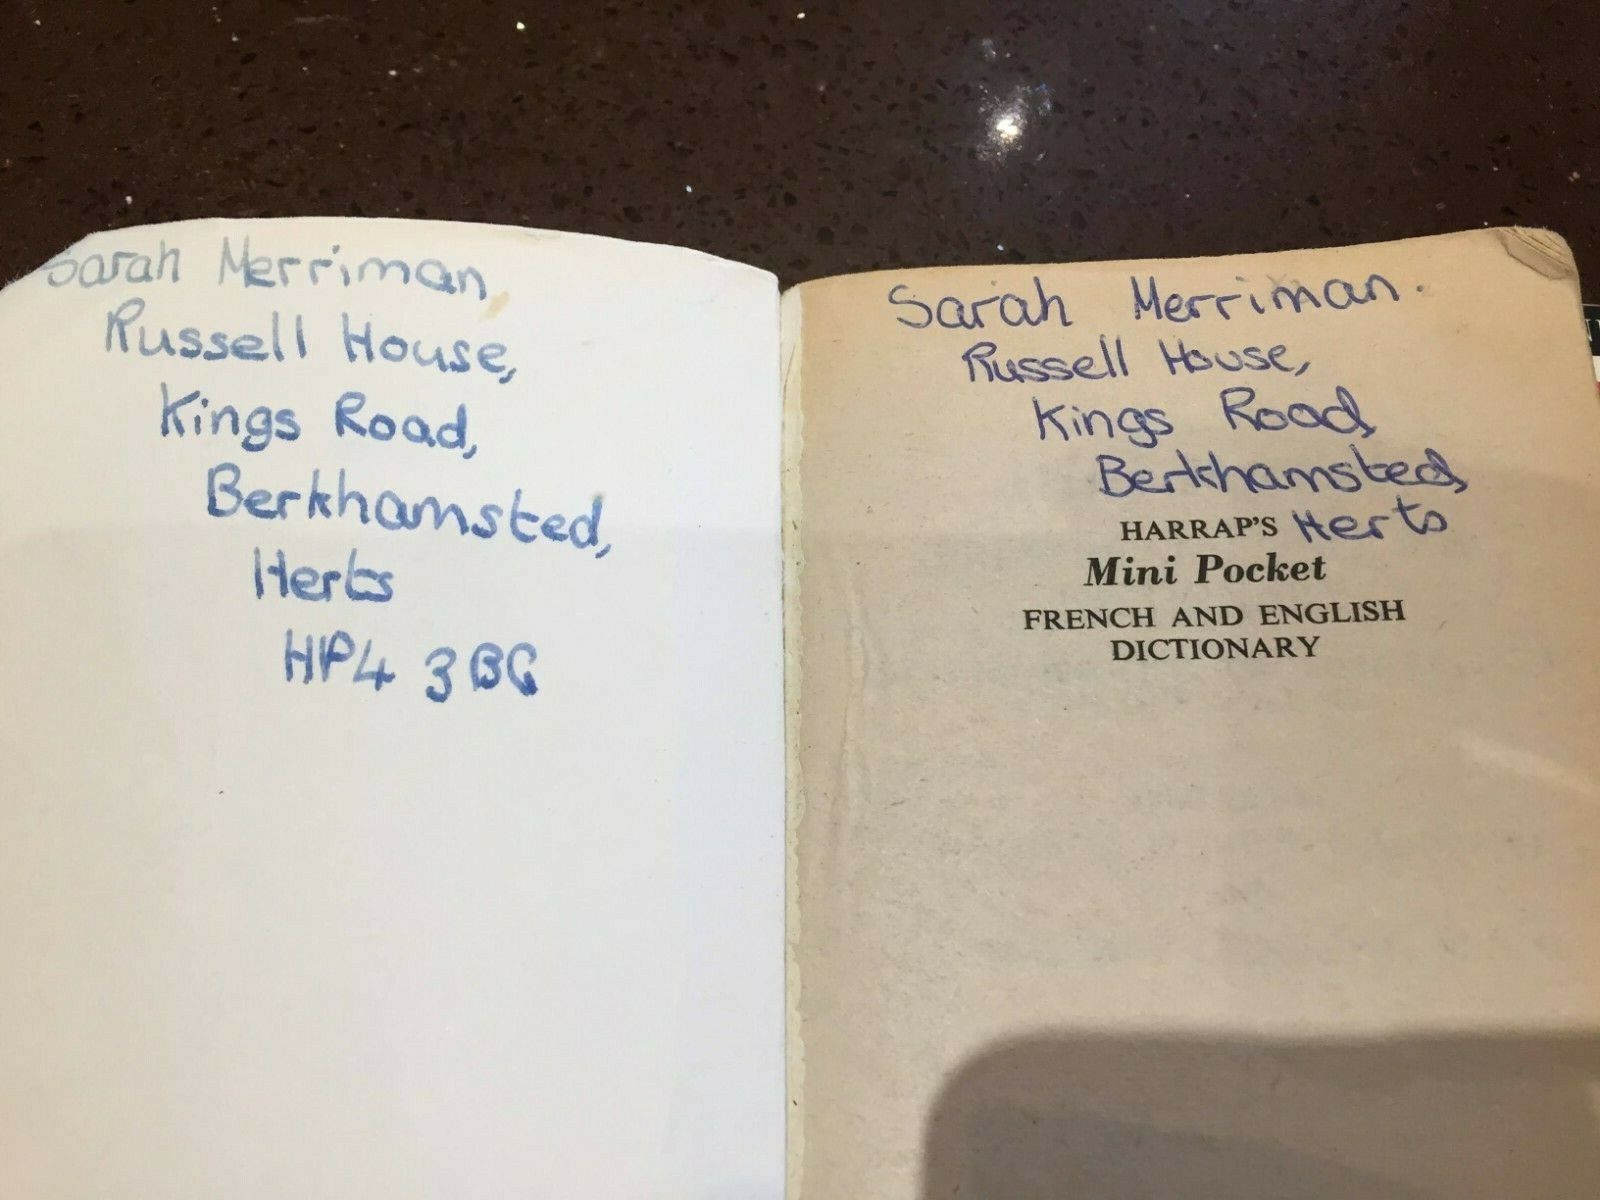 Sarah Merriman,
Russell House,
Kings Road,
Berkhamsted,
Herts
HP4 3BG
Sarah Merriman.
Russell House,
Kings Road,
Berkhamsted,
Herts
HARRAP'S
Mini Pocket
FRENCH AND ENGLISH
DICTIONARY